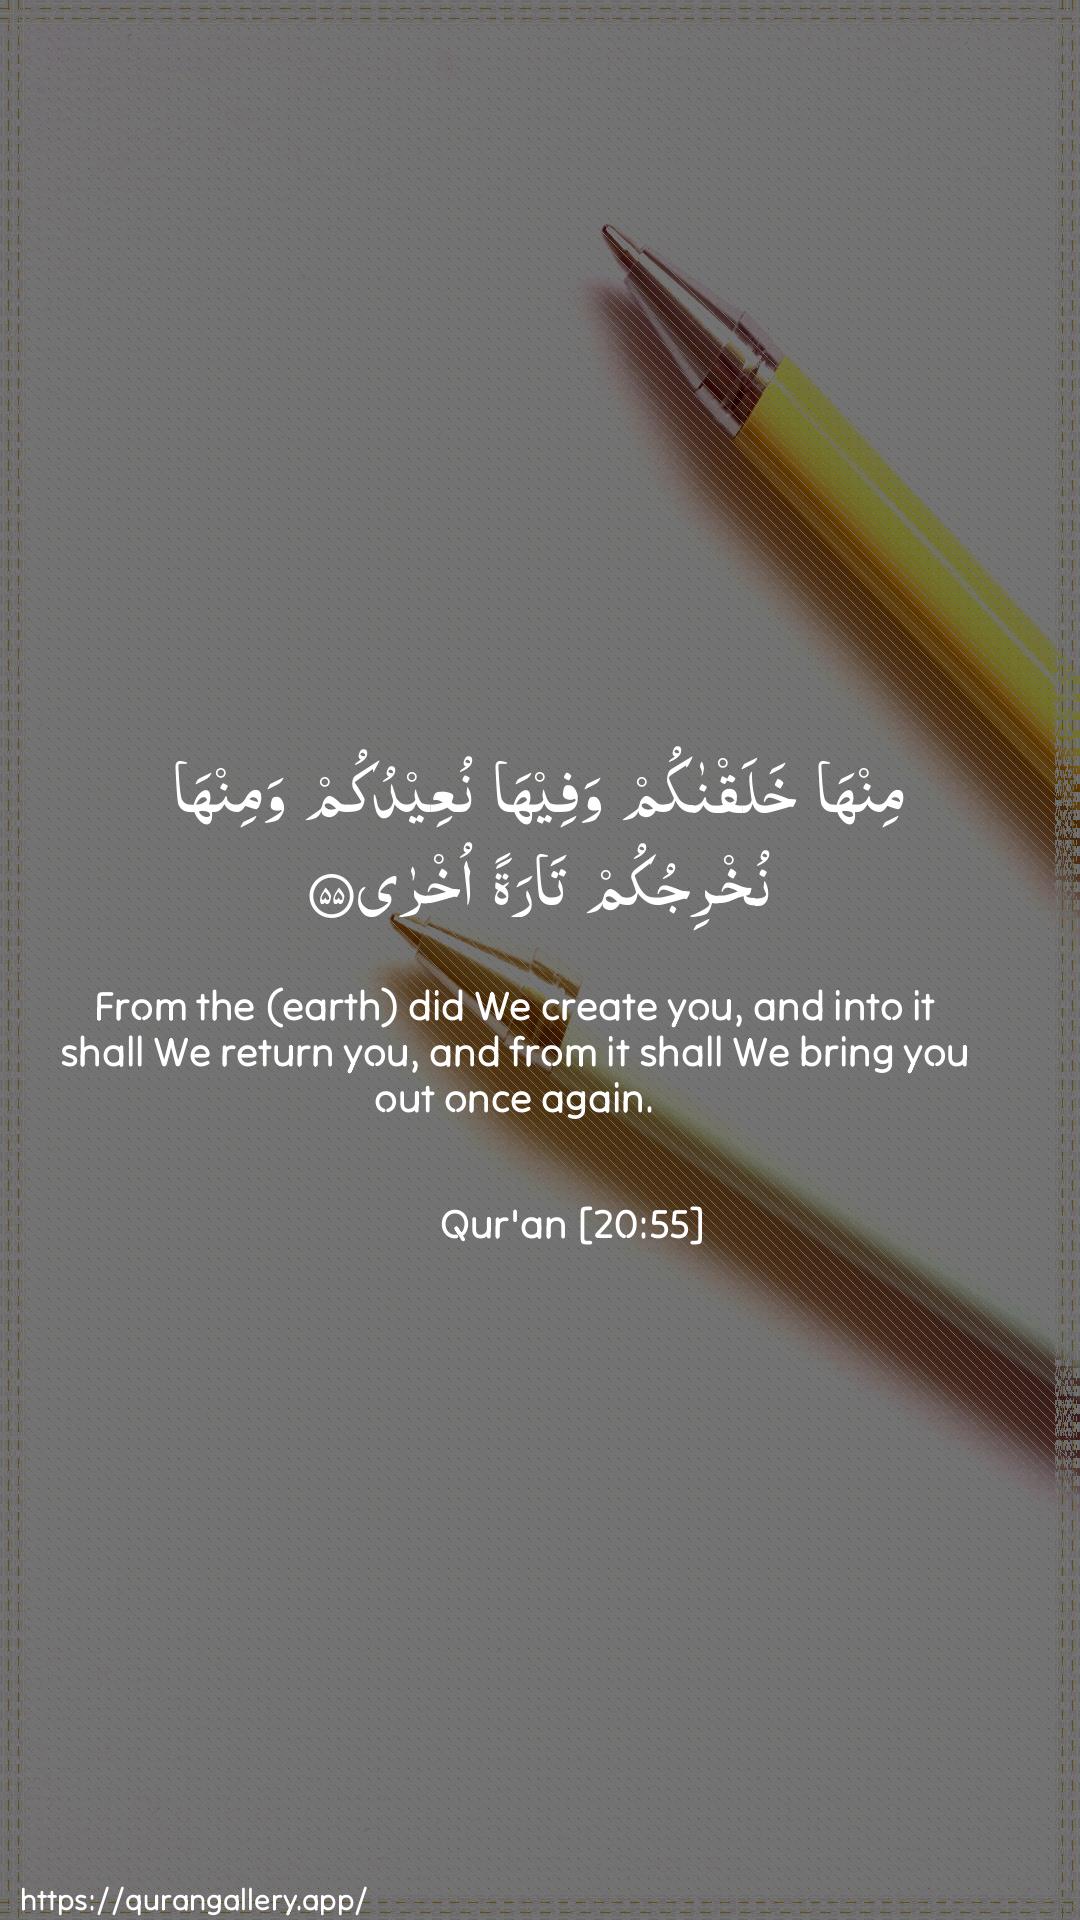 مِنْهَا خَلَقْنٰكُمْ وَفِيْهَا نُعِيْدُكُمْ وَمِنْهَا
نُخْرِجُكُمْ تَارَةً اُخْرٰى۝۵۵
From the (earth) did We create you, and into it
shall We return you, and from it shall We bring you
out once again.
Qur'an [20:55]
https://qurangallery.app/